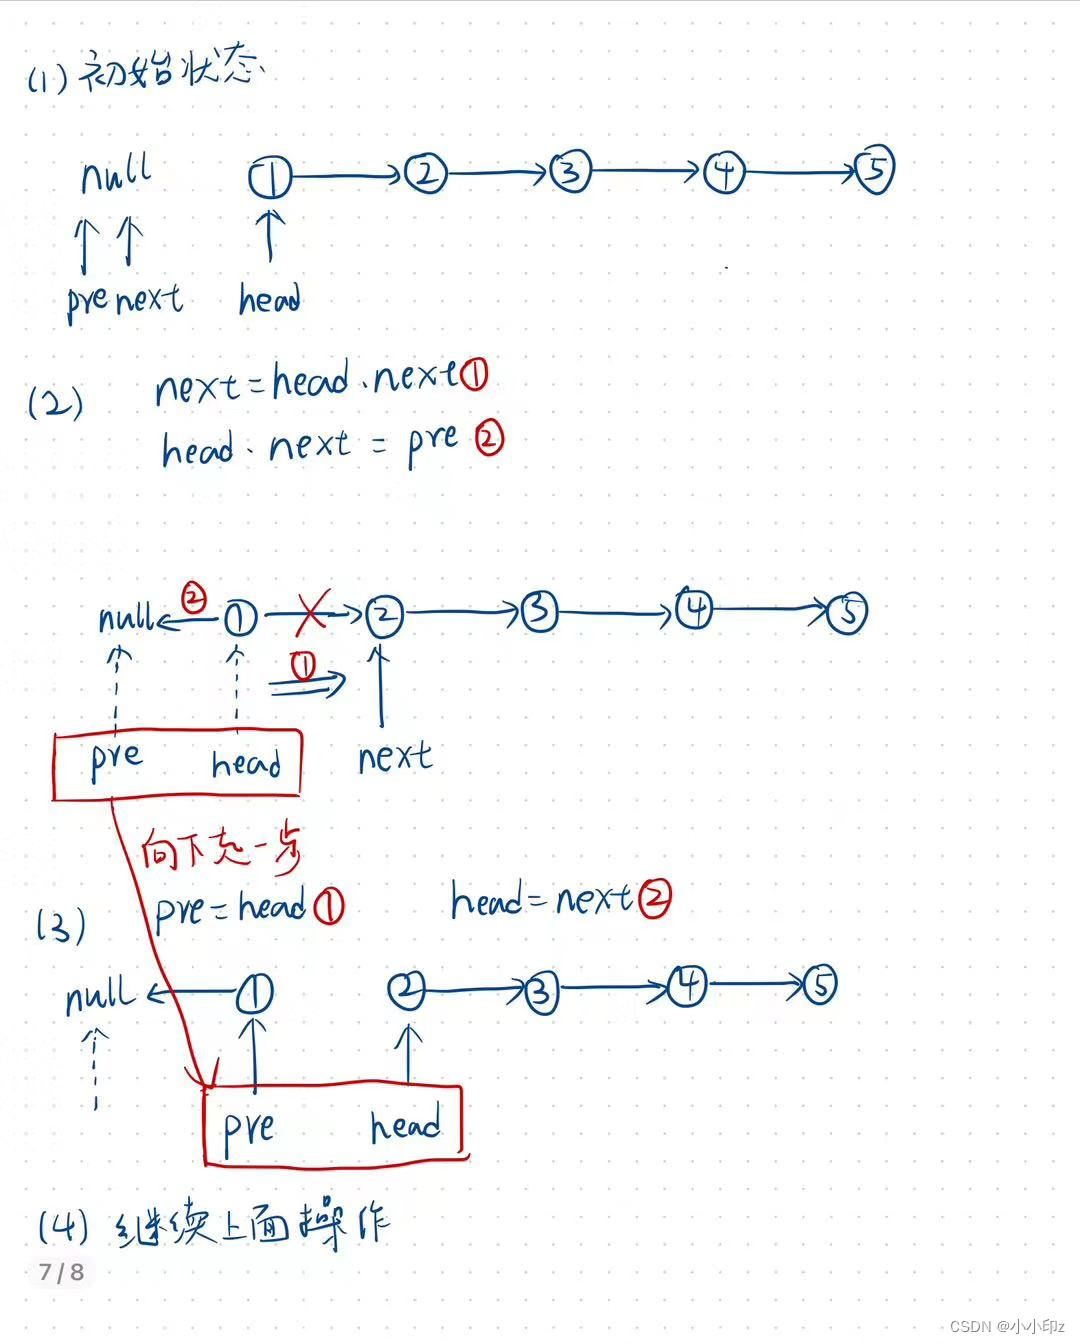 (1) 初始状态
null ① ② ③ ④ ⑤
pre next head
(2) next=head.next①
head.next = pre ②
②
null ① ② ③ ④ ⑤
①
pre head next
向下走一步
(3) pre=head① head=next②
null ① ② ③ ④ ⑤
pre head
(4) 继续上面操作
7/8
CSDN @小小印z